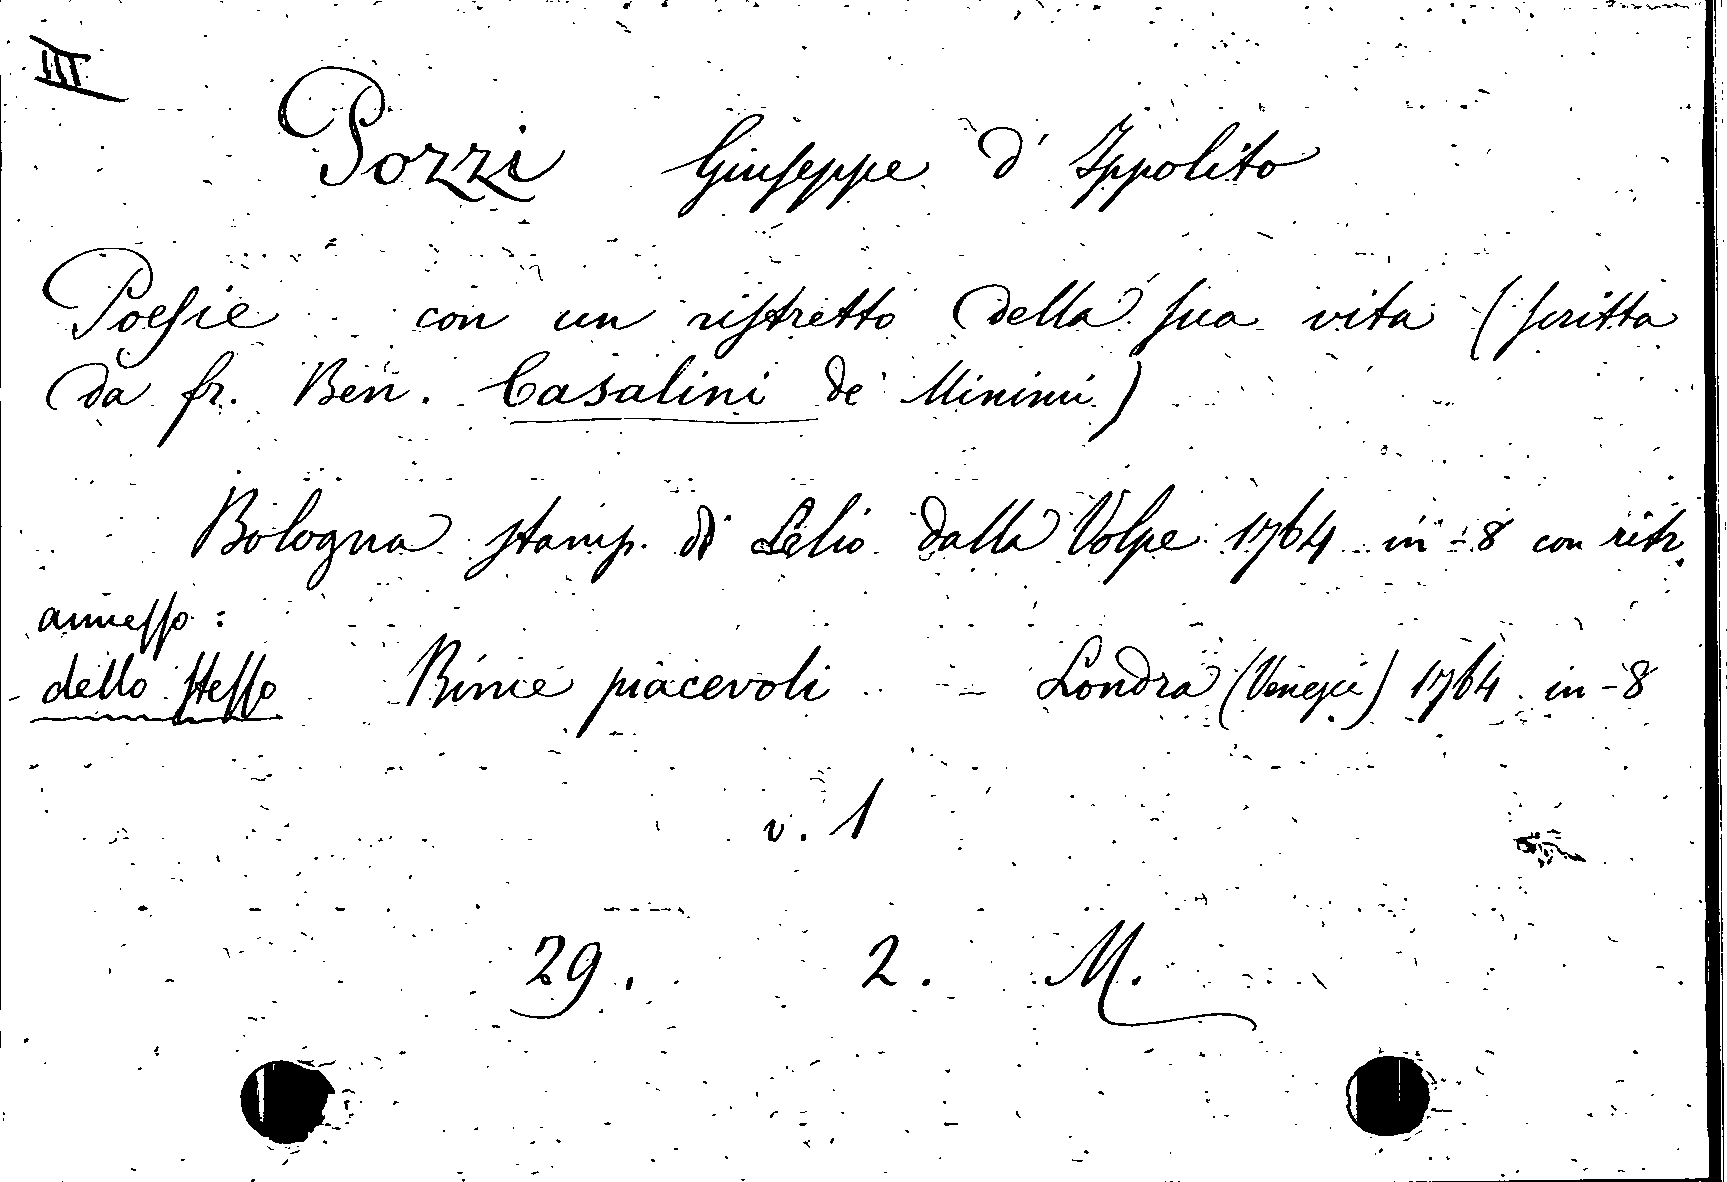 III
Pozzi Giuseppe d' Ippolito
Poesie con un ristretto della sua vita (scritta
da fr. Ben. Casalini de' Minimi)
Bologna stamp. di Lelio dalla Volpe 1764 in-8 con ritr.
annesso:
dello stesso Rime piacevoli - Londra (Venezia) 1764 in-8
v. 1
29. 2. M.